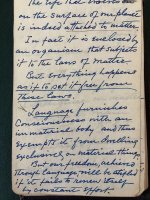 The life that evolves
on the surface of our planet
is indeed attached to matter.
In fact it is enclosed by
an organism that subjects
it to the laws of matter.
But everything happens
as if it set it free from
these laws.
Language furnishes
Consciousness with an
immaterial body and thus
exempts it from dwelling
exclusively on material things.
But our freedom, achieved
through language, will be stifled
if it fails to renew itself
by constant effort.